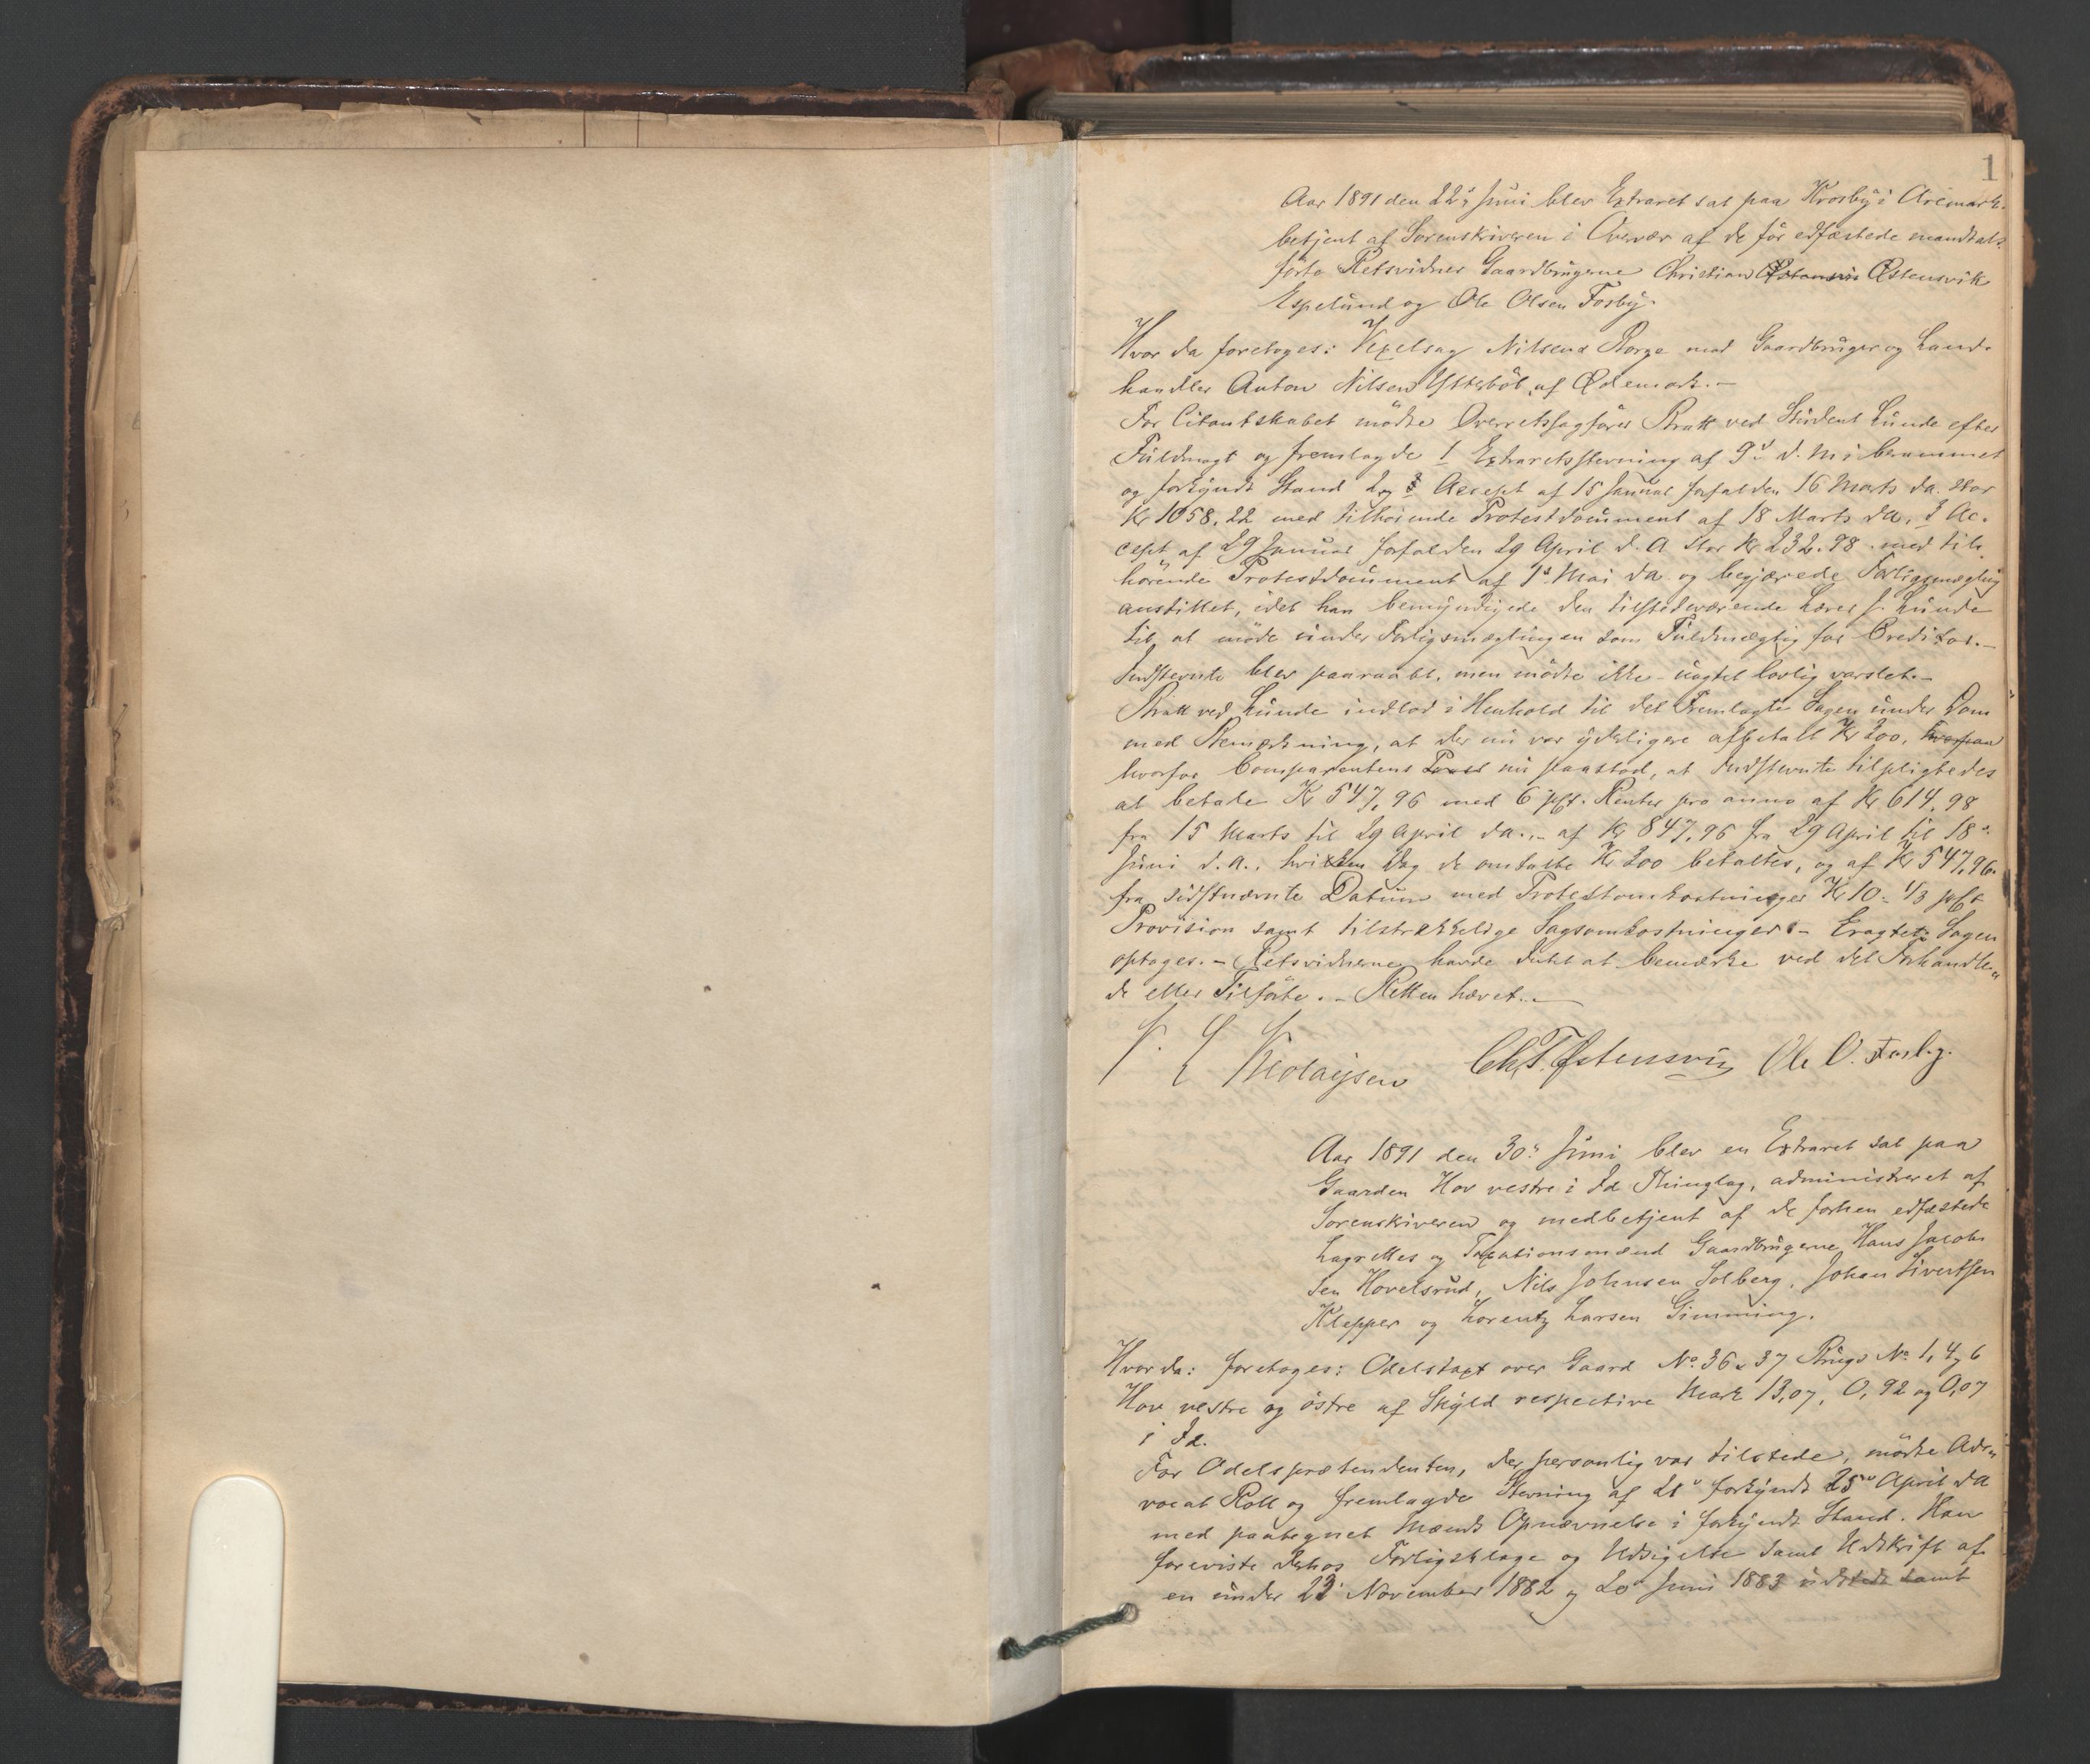 1
Aar 1891 den 22de Juni blev Extraret sat paa Krosby i Aremark.
betjent af Sorenskriveren i Overvær af de før edfæstede mandtals
førte Retsvidner Gaardbrugerne Christian Østensvik
Espelund og Ole Olsen Fosby.
Hvor da foretoges: Vexelsag Nilsen & Borge mod Gaardbruger og Land-
handler Anton Nilsen Ysterböl af Ødemark.-
For Citantskabet mödte Overretssagförer Bratt ved Student Lunde efter
Fuldmagt og fremlagde 1 Extraretsstevning af 9de d. M i berammet
og forkyndt Stand 2 og Accept af 15 Januar forfalden 16 Marts da. stor
Kr 1058,22 med tilhörende Protestdocument af 18 Marts da, 3 Ac-
cept af 29 Januar forfalden 29 April d. A stor Kr 232.98 med til-
hörende Protestdocument af 1ste Mai da og begjærede Forligsmægling
anstillet, idet han bemyndigede den tilstedeværende Lærer J. Lunde
til at möde under Forligsmæglingen som Fuldmægtig for Creditor.-
Indstevnte blev paaraabt, men mödte ikke - uagtet lovlig varslet.-
Bratt ved Lunde indlod i Henhold til det Fremlagte Sagen under Dom
med Bemærkning, at der nu var yderligere afbetalt Kr 200, hvorpaa
hvorfor Comparentens nu paastod, at Indstevnte tilpligtedes
at betale Kr 547,96 med 6 pCt. Renter pro anno af Kr 614,98
fra 15 Marts til 29 April da.,- af Kr 847,96 fra 29 April til 18de
Juni d.a., hvilken Dag de omtalte Kr 200 betaltes, og af Kr 547,96
fra sidstnævnte Datum med Protestomkostninger Kr 10- 1/3 pCt
Provision samt tilstrækkelige Sagsomkostninger.- Eragtet: Sagen
optages.- Retsvidnerne havde Intet at bemærke ved det Forhandle-
de eller Tilförte.- Retten hævet.-
Nicolaysen Chr. T. Østensvig Ole O. Fosby.
Aar 1891 den 30te Juni blev en Extraret sat paa
Gaarden Hov vestre i Id Thinglag, administreret af
Sorenskriveren og medbetjent af de forhen edfæstede
Lagrettes og Taxationsmænd Gaardbrugerne Hans Jacob-
sen Hovelsrud, Nils Johnsen Solberg, Johan Sivertsen
Klepper og Lorentz Larsen Gimming.
Hvor da: foretoges: Odelstaxt over Gaard No 36 & 37 Brugs No 1, 4 og 6
Hov vestre og östre af Skyld respective Mark 13,07, 0,92 og 0,07
i Id.
For Odelsprætendenten, der personlig var tilstede, mödte Ad-
vocat Roll og fremlagde Stevning af 21de forkyndt 25de April da
med paategnet Mænds Opnævnelse i forkyndt Stand. Han
foreviste derhos Forligsklage og Udsigelse samt Udskrift af
en under 23 November 1882 og 20de Juni 1883 udstedt samt